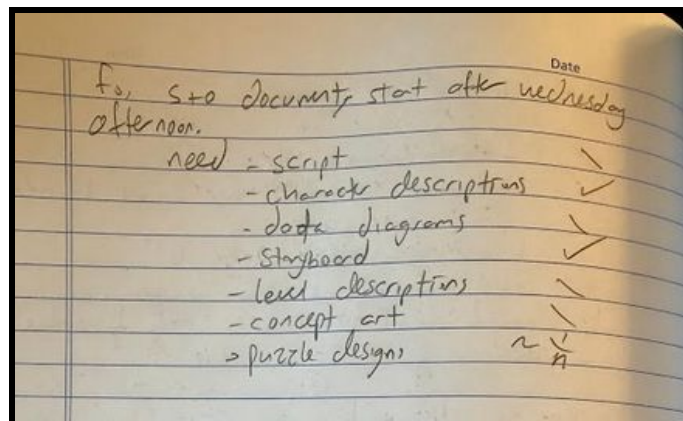 Date
document, start after wednesday
afternoon.
need - script \
- character descriptions ✓
- data diagrams \
- Storyboard ✓
- level descriptions \
- concept art \
puzzle designs ~